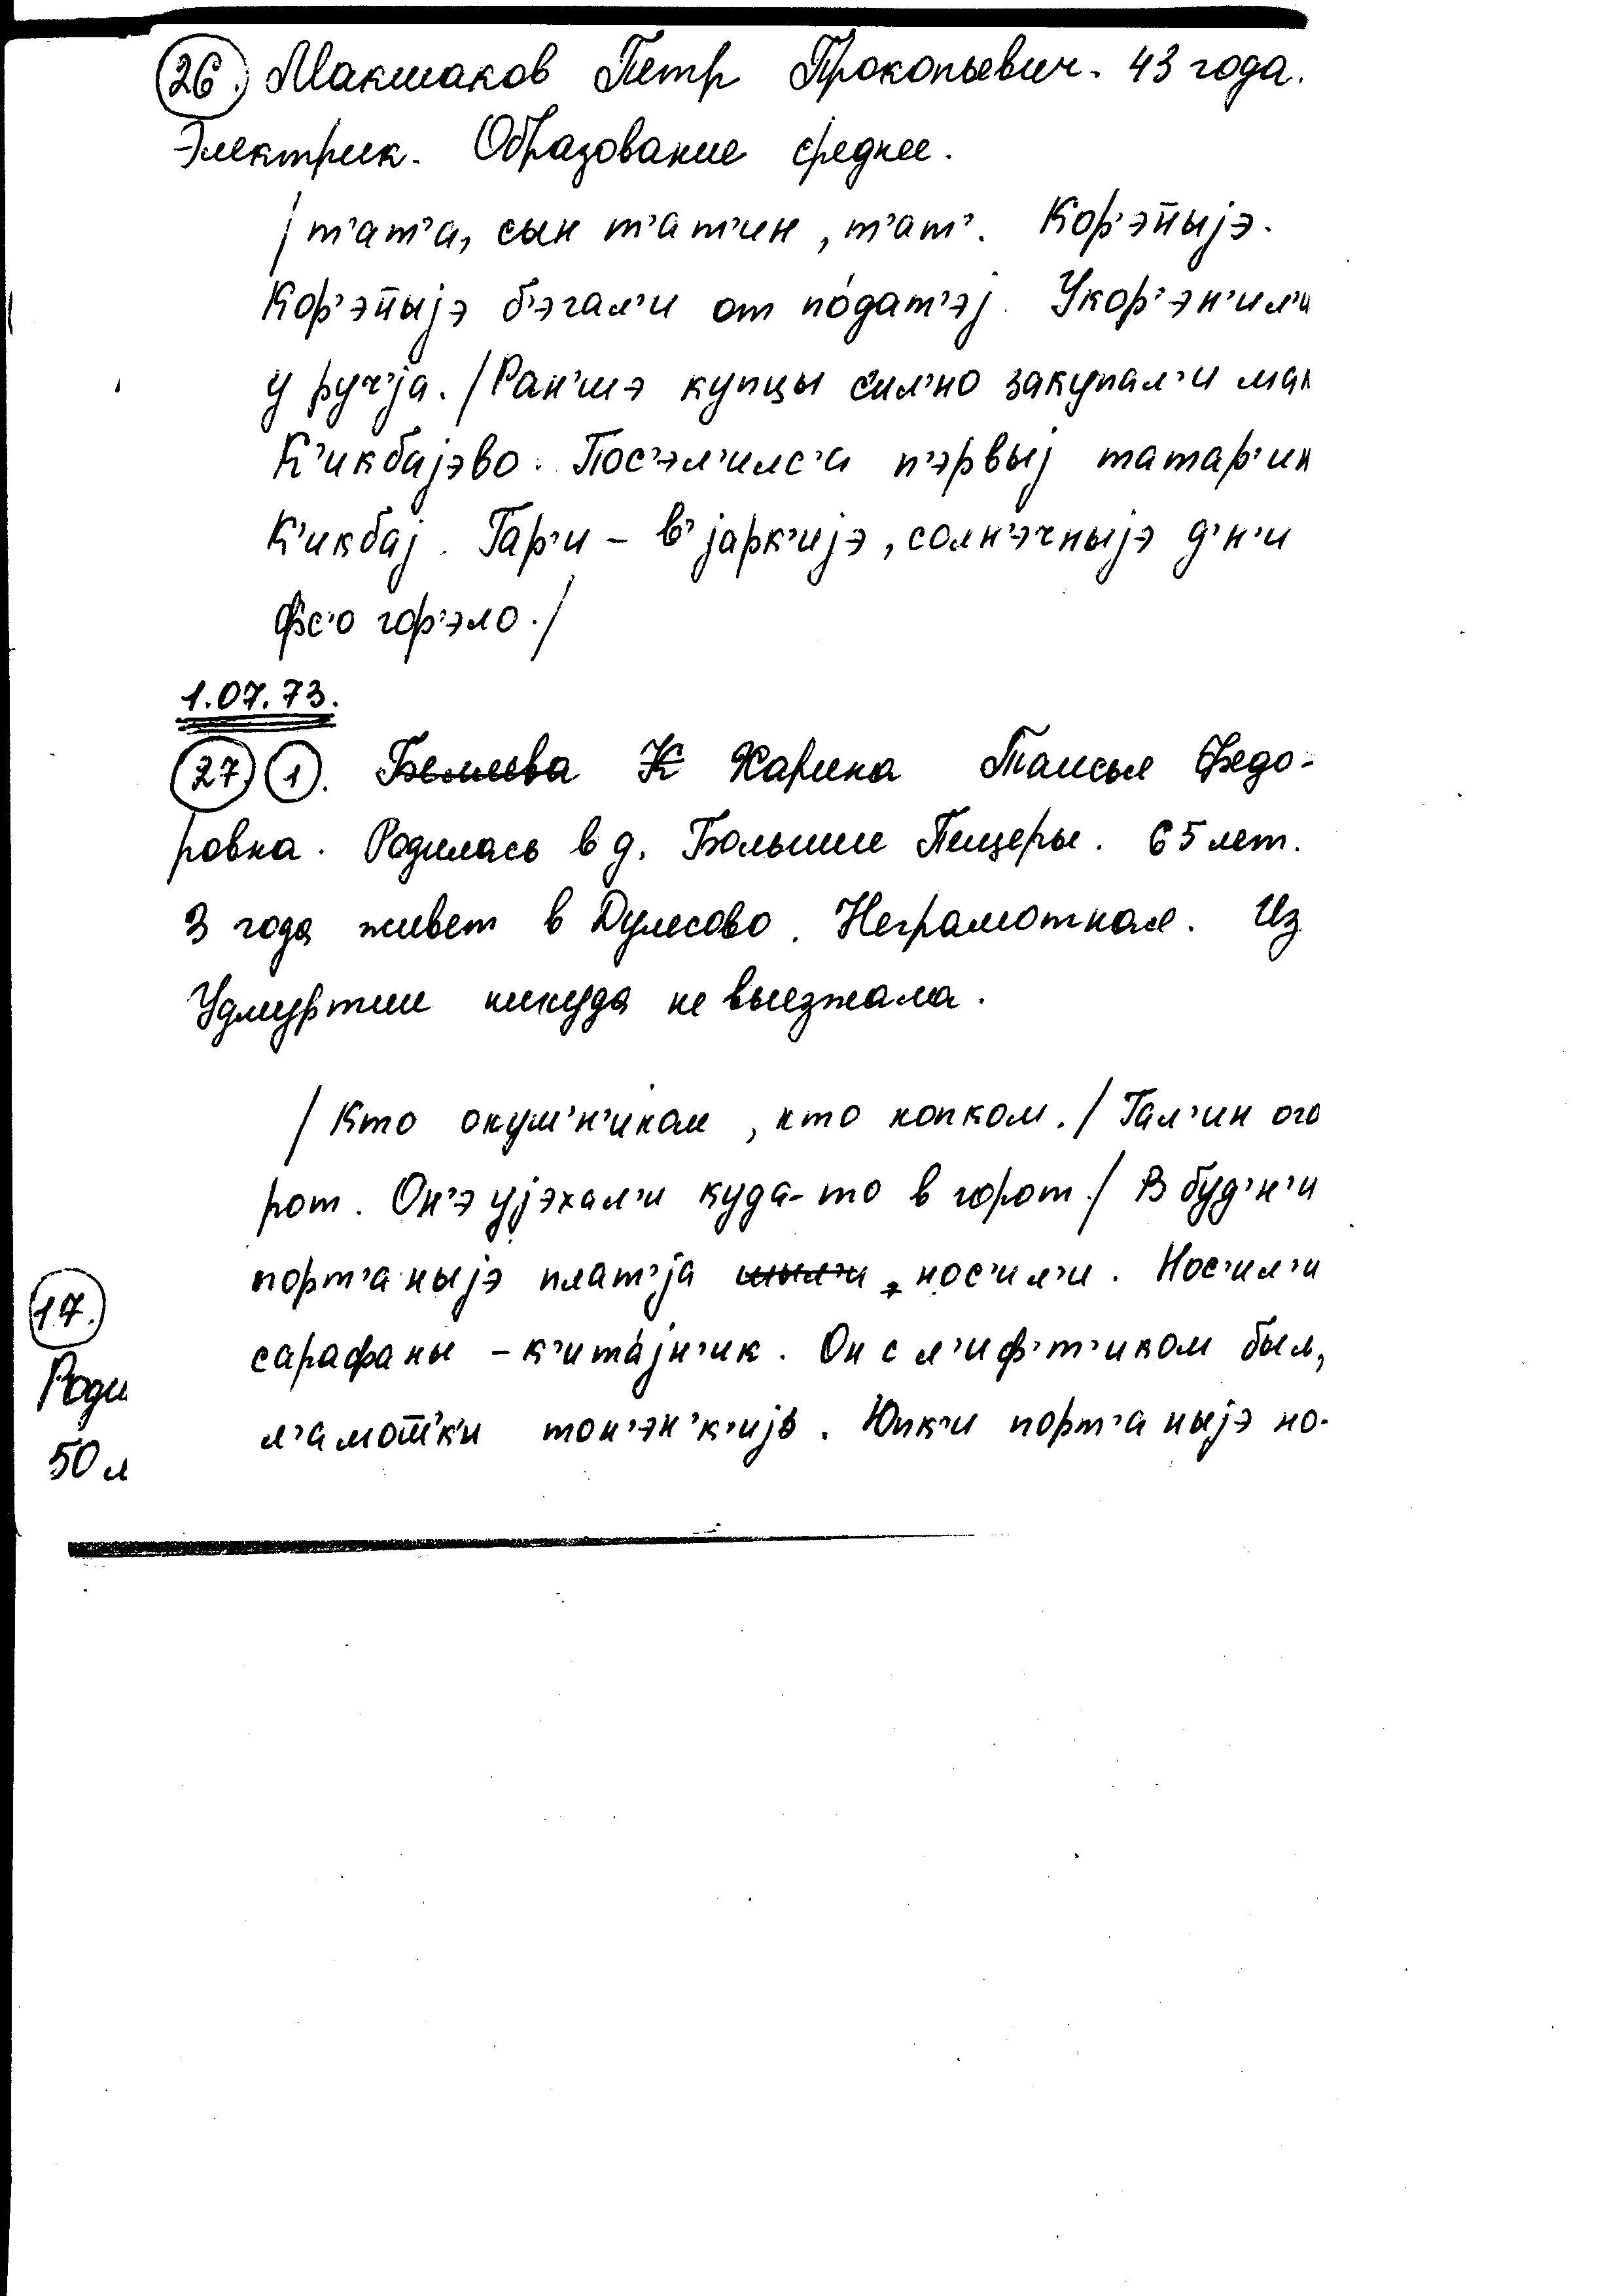 26. Макшаков Петр Прокопьевич. 43 года.
Электрик. Образование среднее.
/т'ат'а, сын т'ат'ин, т'ат'. Кор'эн̄ыjэ.
Кор'эн̄ыjэ б'эгал'и от по́дат'эj. Укор'эн'ил'и
у руч'jа. / Ран'шэ купцы сил'но закупал'и
К'икбаjэво. Пос'эл'илс'а п'эрвыj татар'ин
К'икбаj. Гар'и – в' jарк'иjэ, солн'эчныjэ д'н'и
фс'о гор'эло./
1.07.73.
27 1. Беляева К Харина Таисья Федо-
ровна. Родилась в д. Большие Пещеры. 65 лет.
3 года живет в Дулесово. Неграмотная. Из
Удмуртии никуда не выезжала.
/Кто окуч'н'иком, кто копком./ Гал'ин ого
рот. Он'э уjэхал'и куда-то в горот./ В буд'н'и
порт'аныjэ плат'jа шыл'и нос'ил'и. Нос'ил'и
сарафаны – к'ита́jн'ик. Он с л'иф'т'иком был,
л'амот̄к'и тон'эн'к'иjэ. Юпк'и порт'аныjэ но-
17.
Роди
50 л